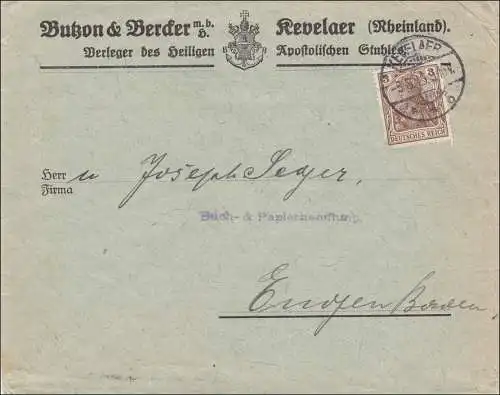 Butzon & Bercker m.b.H. Kevelaer (Rheinland).
Verleger des Heiligen Apostolischen Stuhles
KEVELAER
DEUTSCHES REICH
Herr
Firma
Joseph Seger,
Buch- & Papierhandlung
Engen Baden,